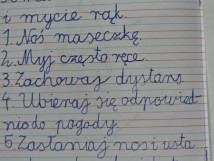 i mycie rąk.
1. Noś maseczkę.
2. Myj często ręce.
3. Zachowaj dystans.
4. Ubieraj się odpowied-
nio do pogody
5. Zasłaniaj nos i usta